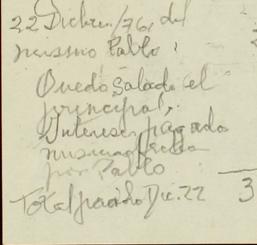 22 Dicbre./76, del
mismo Pablo:
Quedó Saldado el
principal,
Intereses pagado
misma fecha
por Pablo
Total pagado Dic. 22 3